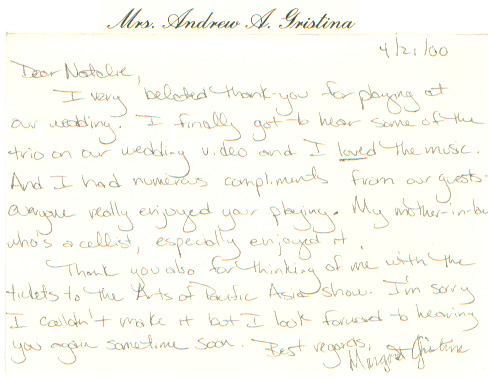 Mrs. Andrew A. Gristina
4/21/00
Dear Natalie,
A very belated thank-you for playing at
our wedding. I finally got to hear some of the
trio on our wedding video and I loved the music.
And I had numerous compliments from our guests-
everyone really enjoyed your playing. My mother-in-law
who's a cellist, especially enjoyed it.
Thank you also for thinking of me with the
tickets to the Arts of Pacific Asia show. I'm sorry
I couldn't make it but I look forward to hearing
you again sometime soon. Best regards,
Margaret Gristina